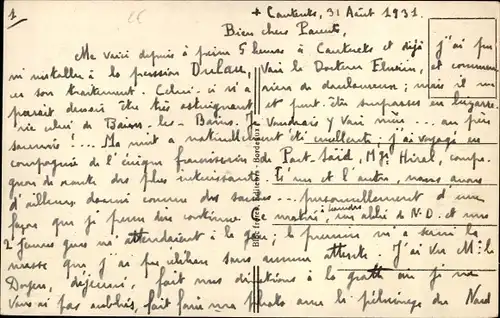 1
+ Cauterets, 31 Août 1931.
Bien chers Parents,
Me voici depuis à peine 5 heures à Cauterets et déjà j'ai pu
m'installer à la pension Dulau, voir le Docteur et commen
cer son traitement. Celui-ci n'a rien de douloureux ; mais il me
parait devoir être très astreignant et peut-être surpasser en
celui de Bains-les-Bains. Je voudrais y voir mes
! Ma nuit a naturellement été excellente ; j'ai voyagé en
compagnie de l'évêque franciscain de Port-Saïd, Mgr Hiral, compa
gnon de route des plus intéressants. L'un et l'autre, nous avons
d'ailleurs dormi comme des personnellement d'une
façon que j'ai peu dû continue. Ce matin, à Lourdes, un abbé de N.D. et une
2 jeunes gens m'attendaient à la gare ; le premier m'a servi la
messe que j'ai pu célébrer sans aucune attente. J'ai vu M. le
Doyen, déjeuner, fait mes dévotions à la grotte où je ne
vous ai pas oubliés, fait faire une photo avec le pèlerinage du Nord
Bloc Frères, Éditeurs, Bordeaux